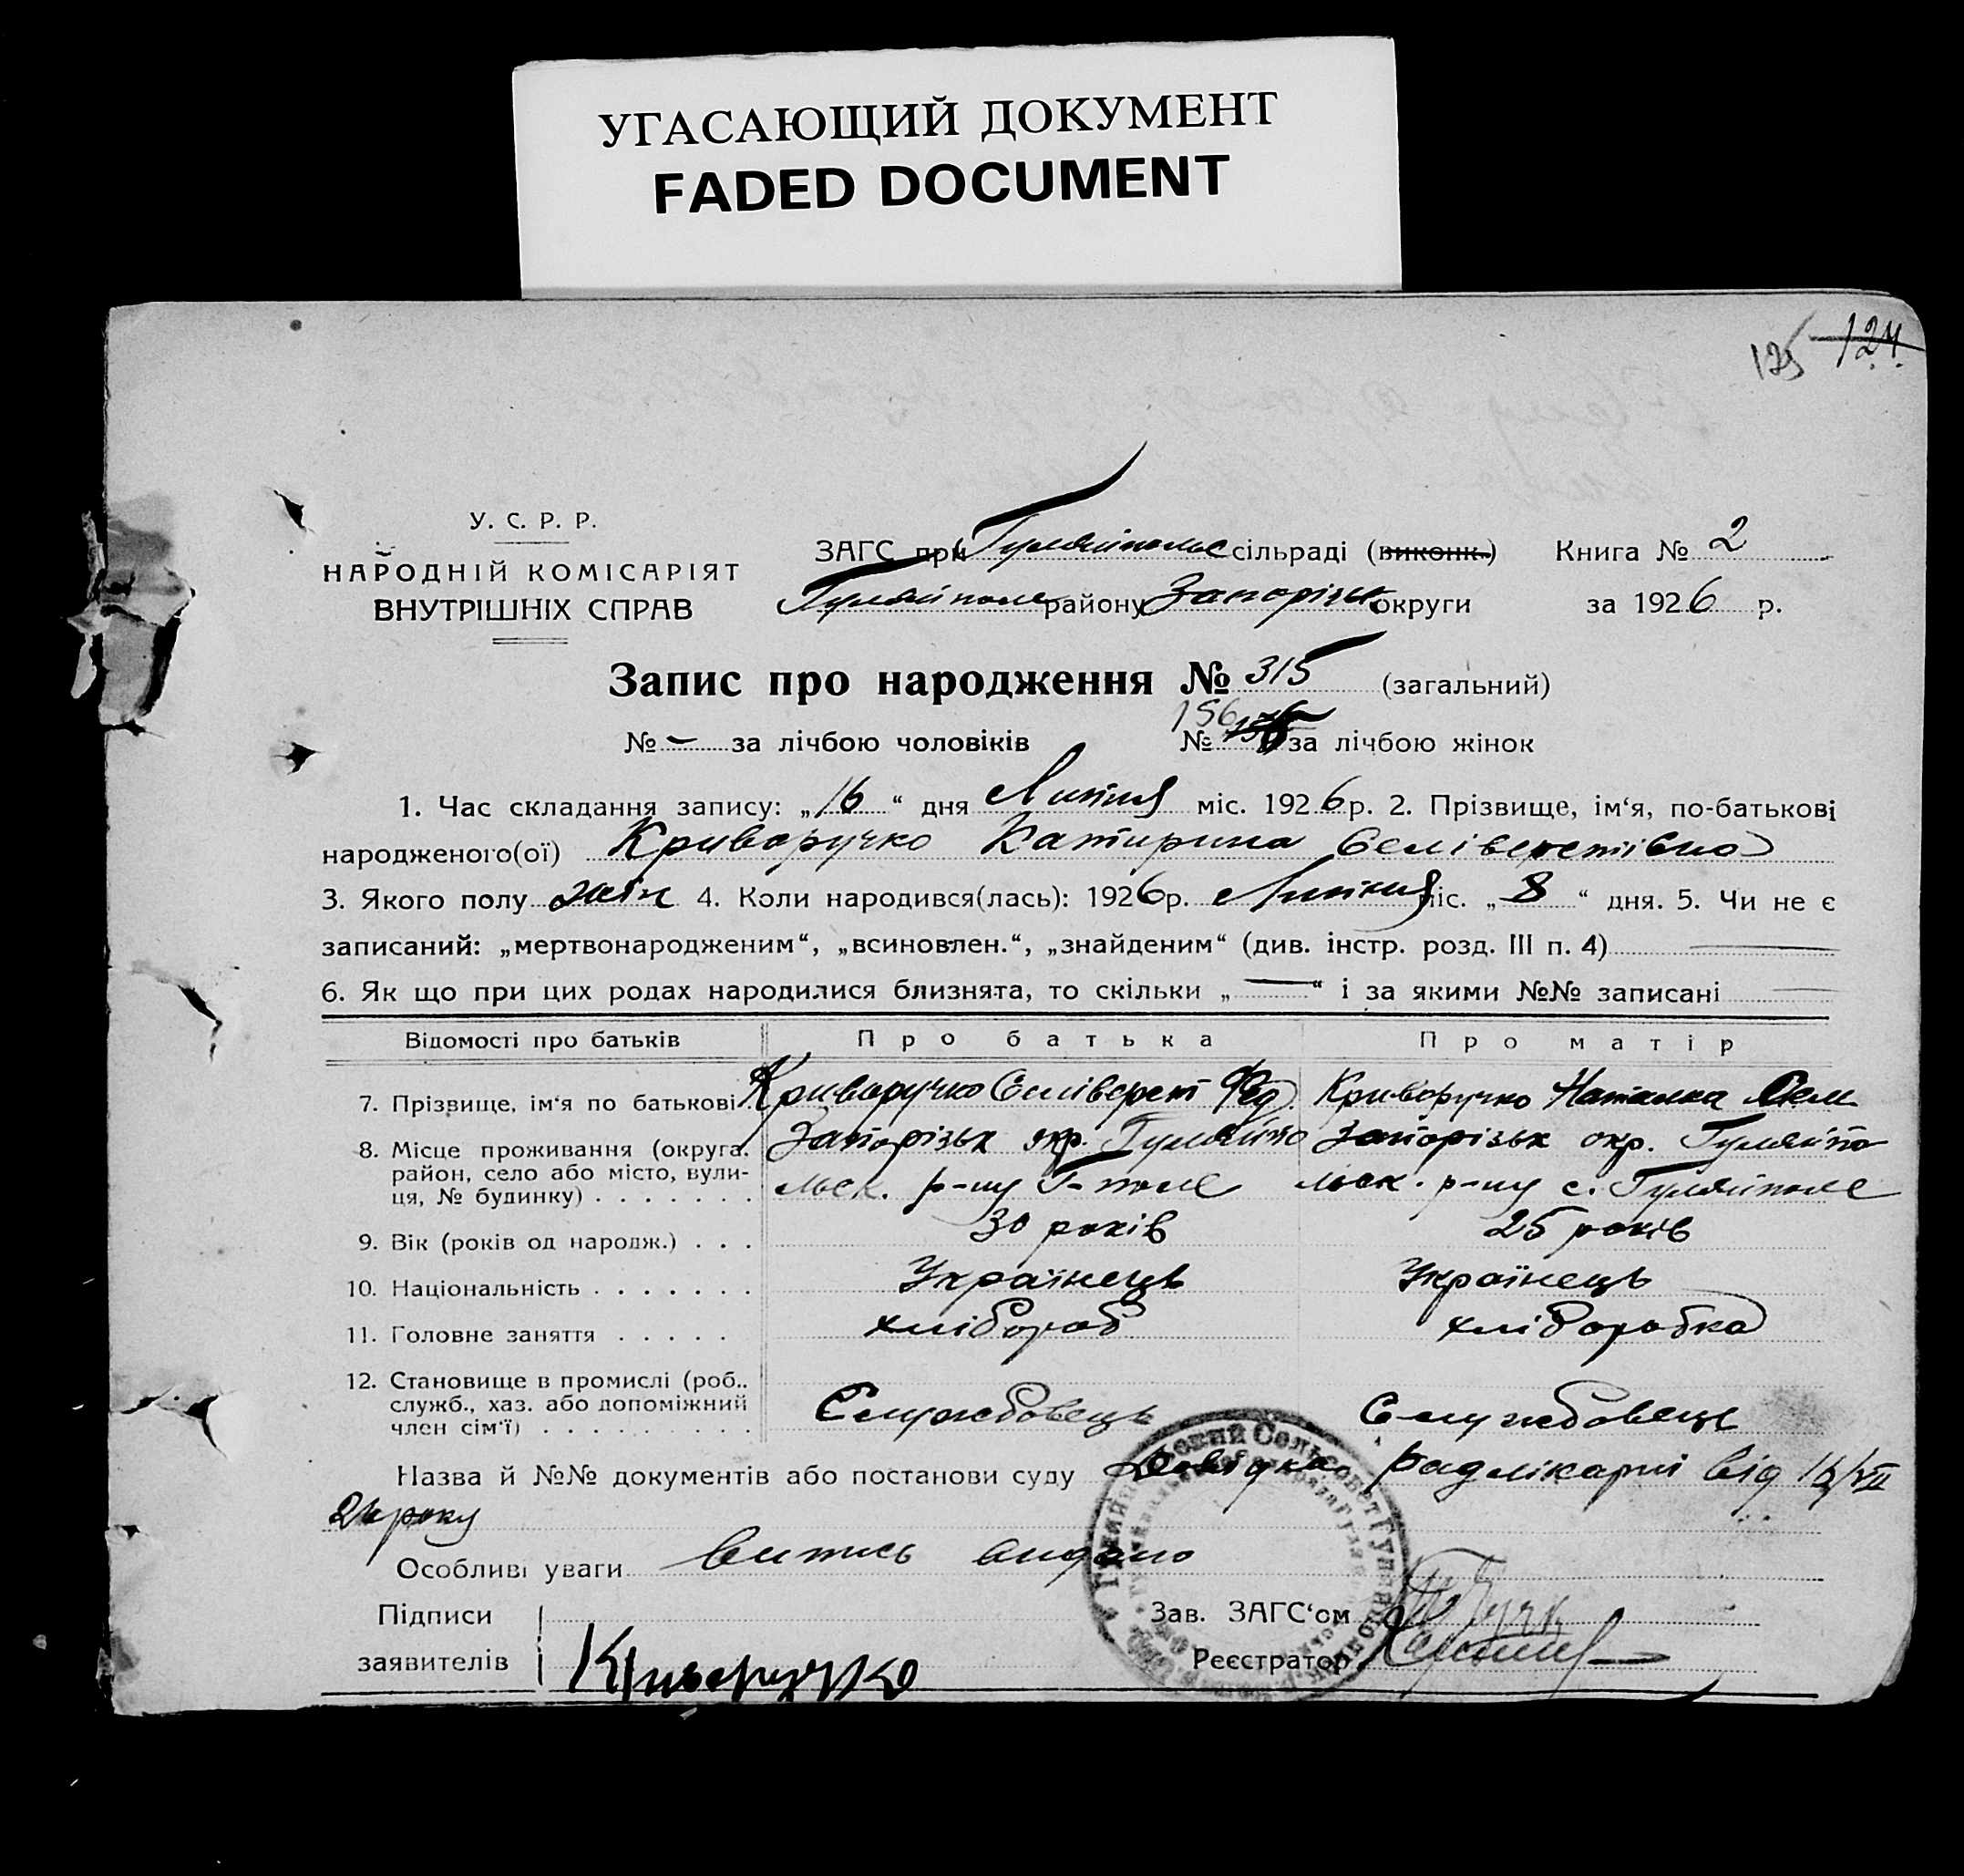 УГАСАЮЩИЙ ДОКУМЕНТ
FADED DOCUMENT
125 124.
У. С. Р. Р.
НАРОДНІЙ КОМІСАРІЯТ
ВНУТРІШНІХ СПРАВ
ЗАГС при Гуляйпольс сільраді (виконк.) Книга № 2
Гуляйполе району Запорізьк округи за 1926 р.
Запис про народження № 315 (загальний)
156
№ – за лічбою чоловіків № за лічбою жінок
1. Час складання запису: „16“ дня Липня міс. 1926 р. 2. Прізвище, ім‘я, по-батькові
народженого(ої) Криворучко Катирина Селіверстівна
3. Якого полу жін 4. Коли народився(лась): 1926 р. Липня міс. „8“ дня. 5. Чи не є
записаний: „мертвонародженим“, „всиновлен.“, „знайденим“ (див. інстр. розд. III п. 4)
6. Як що при цих родах народилися близнята, то скільки „—“ і за якими №№ записані
Відомості про батьків Про батька Про матір
7. Прізвище, ім‘я по батькові Криворучко Селіверст Фед. Криворучко Наталка
8. Місце проживання (округа, район, село або місто, вулиця, № будинку) Запорізьк окр. Гуляйпольск. р-ну Г-поле Запорізьк окр. Гуляйпольск. р-ну с. Гуляйполе
9. Вік (років од народж.) 30 років 25 років
10. Національність Українець Українець
11. Головне заняття хлібороб хліборобка
12. Становище в промислі (роб., служб., хаз. або допоміжний член сім‘ї) Службовець Службовець
Назва й №№ документів або постанови суду Довідка радлікарні від /VII
26 року
Особливі уваги Витись видано
Підписи Зав. ЗАГС‘ом
заявителів Криворучко Реєстратор